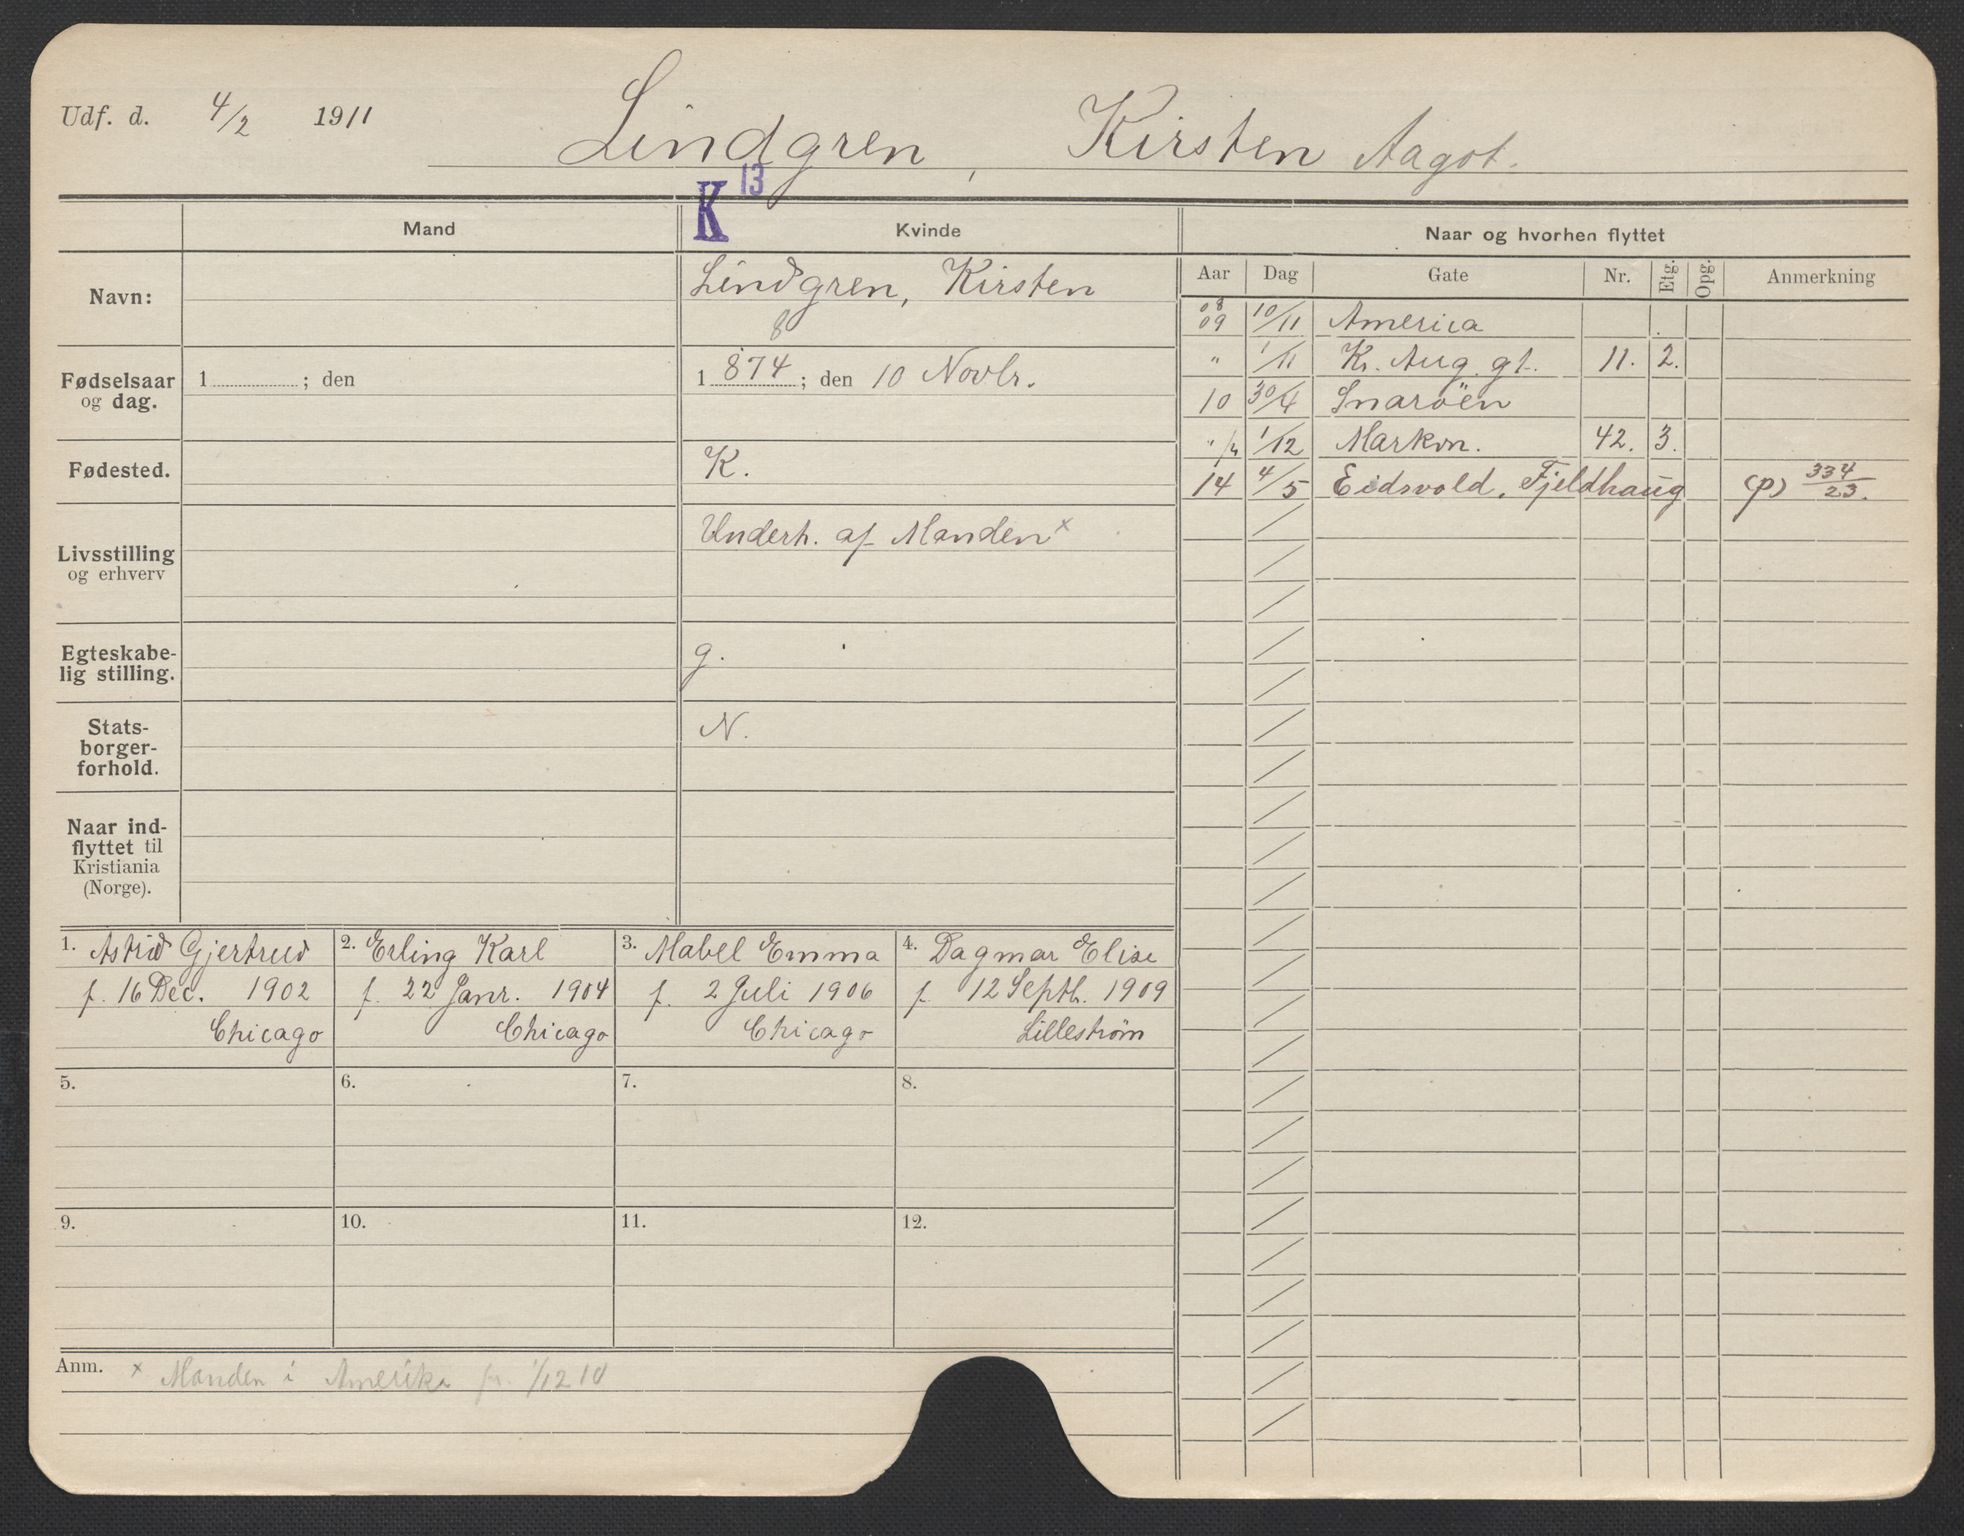 Udf. d. 4/2 1911
Lindgren, Kirsten Aagot.
K 13
Mand
Kvinde
Naar og hvorhen flyttet
Navn:
Lindgren, Kirsten
8
Fødselsaar og dag.
1 ; den
1 874 ; den 10 Novbr.
Fødested.
K.
Livsstilling og erhverv
Underh. af Manden x
Egteskabe-
lig stilling.
g.
Stats-
borger-
forhold.
N.
Naar ind-
flyttet til
Kristiania
(Norge).
Aar Dag Gate Nr. Etg. Opg. Anmerkning
08
09 10/11 America
" 1/11 Kr. Aug. gt. 11. 2.
10 30/4 Snaröen
" 1/12 Markvn. 42. 3.
14 4/5 Eidsvold, Fjeldhaug (p) 334/23.
1. Astrid Gjertrud
f. 16 Dec. 1902
Chicago
2. Erling Karl
f. 22 Janr. 1904
Chicago
3. Mabel Emma
f. 2 Juli 1906
Chicago
4. Dagmar Elise
f. 12 Septb. 1909
Lilleström
5.
6.
7.
8.
9.
10.
11.
12.
Anm. x Manden i Amerika fr. 1/12 10